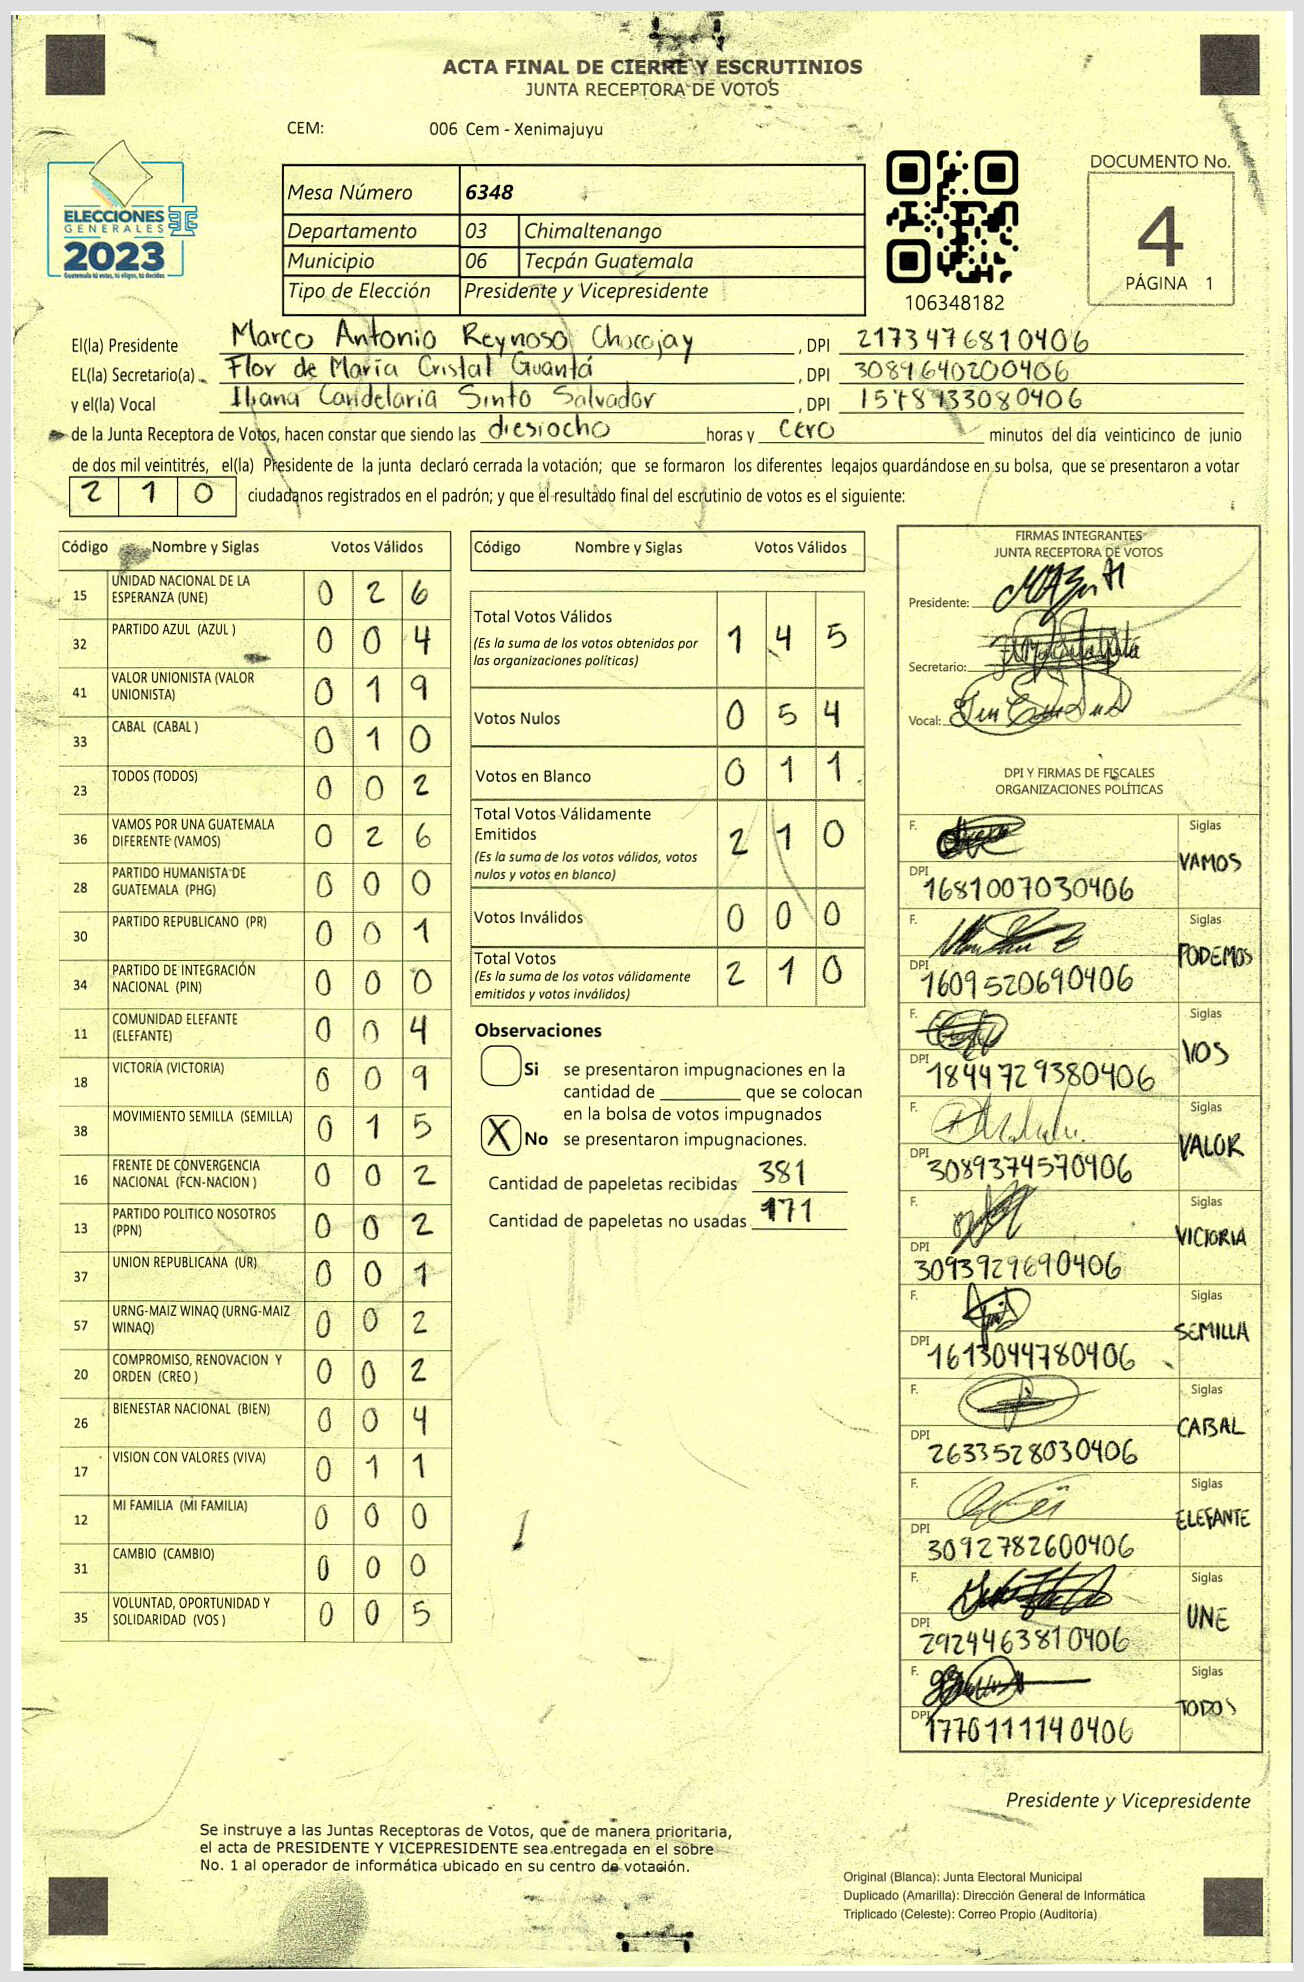 ACTA FINAL DE CIERRE Y ESCRUTINIOS
JUNTA RECEPTORA DE VOTOS
CEM: 006 Cem - Xenimajuyu
ELECCIONES
GENERALES
2023
Guatemala tú votas, tú eliges, tú decides
Mesa Número 6348
Departamento 03 Chimaltenango
Municipio 06 Tecpán Guatemala
Tipo de Elección Presidente y Vicepresidente
106348182
DOCUMENTO No.
4
PÁGINA 1
El(la) Presidente Marco Antonio Reynoso Chocojay , DPI 2173476810406
EL(la) Secretario(a) Flor de María Cristal Guantá , DPI 3089640200406
y el(la) Vocal Iliana Candelaria Sinto Salvador , DPI 1578933080406
de la Junta Receptora de Votos, hacen constar que siendo las diesiocho horas y cero minutos del día veinticinco de junio
de dos mil veintitrés, el(la) Presidente de la junta declaró cerrada la votación; que se formaron los diferentes legajos guardándose en su bolsa, que se presentaron a votar
210 ciudadanos registrados en el padrón; y que el resultado final del escrutinio de votos es el siguiente:
Código Nombre y Siglas Votos Válidos
15 UNIDAD NACIONAL DE LA ESPERANZA (UNE) 0 2 6
32 PARTIDO AZUL (AZUL ) 0 0 4
41 VALOR UNIONISTA (VALOR UNIONISTA) 0 1 9
33 CABAL (CABAL ) 0 1 0
23 TODOS (TODOS) 0 0 2
36 VAMOS POR UNA GUATEMALA DIFERENTE (VAMOS) 0 2 6
28 PARTIDO HUMANISTA DE GUATEMALA (PHG) 0 0 0
30 PARTIDO REPUBLICANO (PR) 0 0 1
34 PARTIDO DE INTEGRACIÓN NACIONAL (PIN) 0 0 0
11 COMUNIDAD ELEFANTE (ELEFANTE) 0 0 4
18 VICTORIA (VICTORIA) 0 0 9
38 MOVIMIENTO SEMILLA (SEMILLA) 0 1 5
16 FRENTE DE CONVERGENCIA NACIONAL (FCN-NACION ) 0 0 2
13 PARTIDO POLITICO NOSOTROS (PPN) 0 0 2
37 UNION REPUBLICANA (UR) 0 0 1
57 URNG-MAIZ WINAQ (URNG-MAIZ WINAQ) 0 0 2
20 COMPROMISO, RENOVACION Y ORDEN (CREO ) 0 0 2
26 BIENESTAR NACIONAL (BIEN) 0 0 4
17 VISION CON VALORES (VIVA) 0 1 1
12 MI FAMILIA (MI FAMILIA) 0 0 0
31 CAMBIO (CAMBIO) 0 0 0
35 VOLUNTAD, OPORTUNIDAD Y SOLIDARIDAD (VOS ) 0 0 5
Código Nombre y Siglas Votos Válidos
Total Votos Válidos 1 4 5
(Es la suma de los votos obtenidos por
las organizaciones políticas)
Votos Nulos 0 5 4
Votos en Blanco 0 1 1
Total Votos Válidamente
Emitidos 2 1 0
(Es la suma de los votos válidos, votos
nulos y votos en blanco)
Votos Inválidos 0 0 0
Total Votos 2 1 0
(Es la suma de los votos válidamente
emitidos y votos inválidos)
Observaciones
Si se presentaron impugnaciones en la
cantidad de ________ que se colocan
en la bolsa de votos impugnados
X No se presentaron impugnaciones.
Cantidad de papeletas recibidas 381
Cantidad de papeletas no usadas 171
FIRMAS INTEGRANTES
JUNTA RECEPTORA DE VOTOS
Presidente:
Secretario:
Vocal:
DPI Y FIRMAS DE FISCALES
ORGANIZACIONES POLÍTICAS
F. Siglas
VAMOS
DPI 1681007030406
F. Siglas
PODEMOS
DPI 1609520690406
F. Siglas
VOS
DPI 1844729380406
F. Siglas
VALOR
DPI 3089374570406
F. Siglas
VICTORIA
DPI 3093929690406
F. Siglas
SEMILLA
DPI 1613044780406
F. Siglas
CABAL
DPI 2633528030406
F. Siglas
ELEFANTE
DPI 3092782600406
F. Siglas
UNE
DPI 2924463810406
F. Siglas
TODOS
DPI 1770111140406
Presidente y Vicepresidente
Se instruye a las Juntas Receptoras de Votos, que de manera prioritaria,
el acta de PRESIDENTE Y VICEPRESIDENTE sea entregada en el sobre
No. 1 al operador de informática ubicado en su centro de votación.
Original (Blanca): Junta Electoral Municipal
Duplicado (Amarilla): Dirección General de Informática
Triplicado (Celeste): Correo Propio (Auditoría)